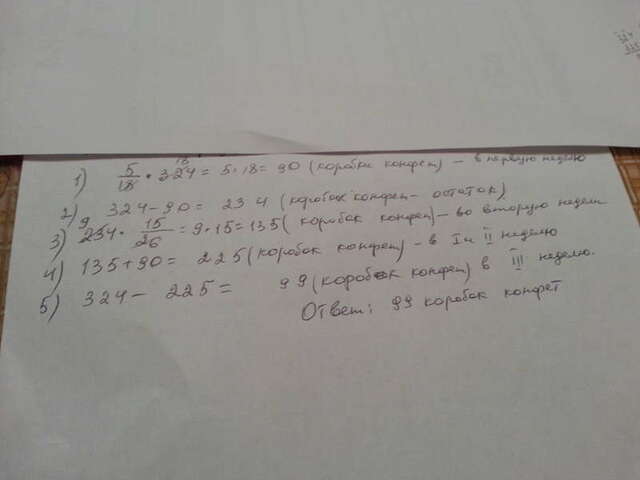 1) 5/18 · 324 18 = 5·18 = 90 (коробки конфет) – в первую неделю
2) 324 – 90 = 234 (коробок конфет – остаток)
3) 234 9 · 15/26 = 9·15 = 135 (коробок конфет) – во вторую недели
4) 135 + 90 = 225 (коробок конфет) – в I и II неделю
5) 324 – 225 = 99 (коробок конфет) в III неделю.
Ответ: 99 коробок конфет